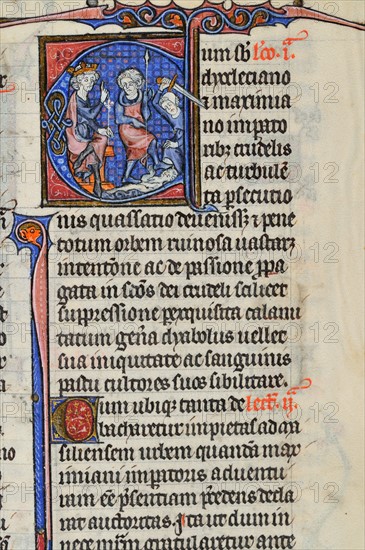 Cum sb lc̃o i.
dyocleciano
⁊ maximia
no impato
ribꝫ crudelis
ac turbule
ta ꝑsecutio
nis quassatio deueniss ⁊ pene
totum orbem ruinosa uastaꝛ
intentõne ac de passione ꝓpa
gata in sc̃os dei crudeli scilicet
suppressione ꝑexquisita calami
tatum geñа dyabolus uellet
sua iniquitate ac sanguinis
pastu cultores suos sibilitare.
Cum ubiqꝫ tanta de lect̃. ij.
bacharetur impietas ad ma
siliensem urbem quandã maꝛ
imiani imꝑatoris aduentu
iam ee ꝑsentiam ꝑcedens decla
rat auctoritas. Ita ut dum in
nece mr̃m gratularetur ante